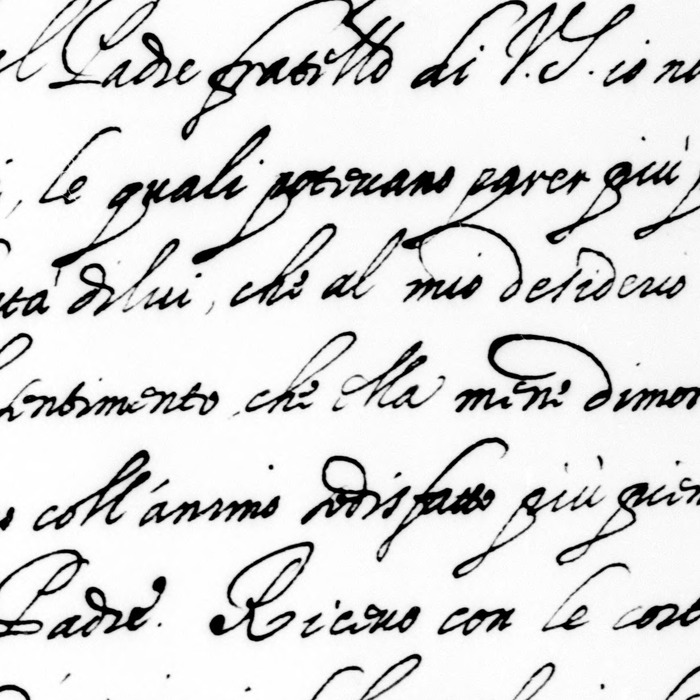 el Padre fratello di V.S. io no
, le quali potevano parer più
tà di lui, che al mio desiderio
sentimento che ella mene dimor
coll'animo sodisfatto più pien
Padre. Ricevo con le cor